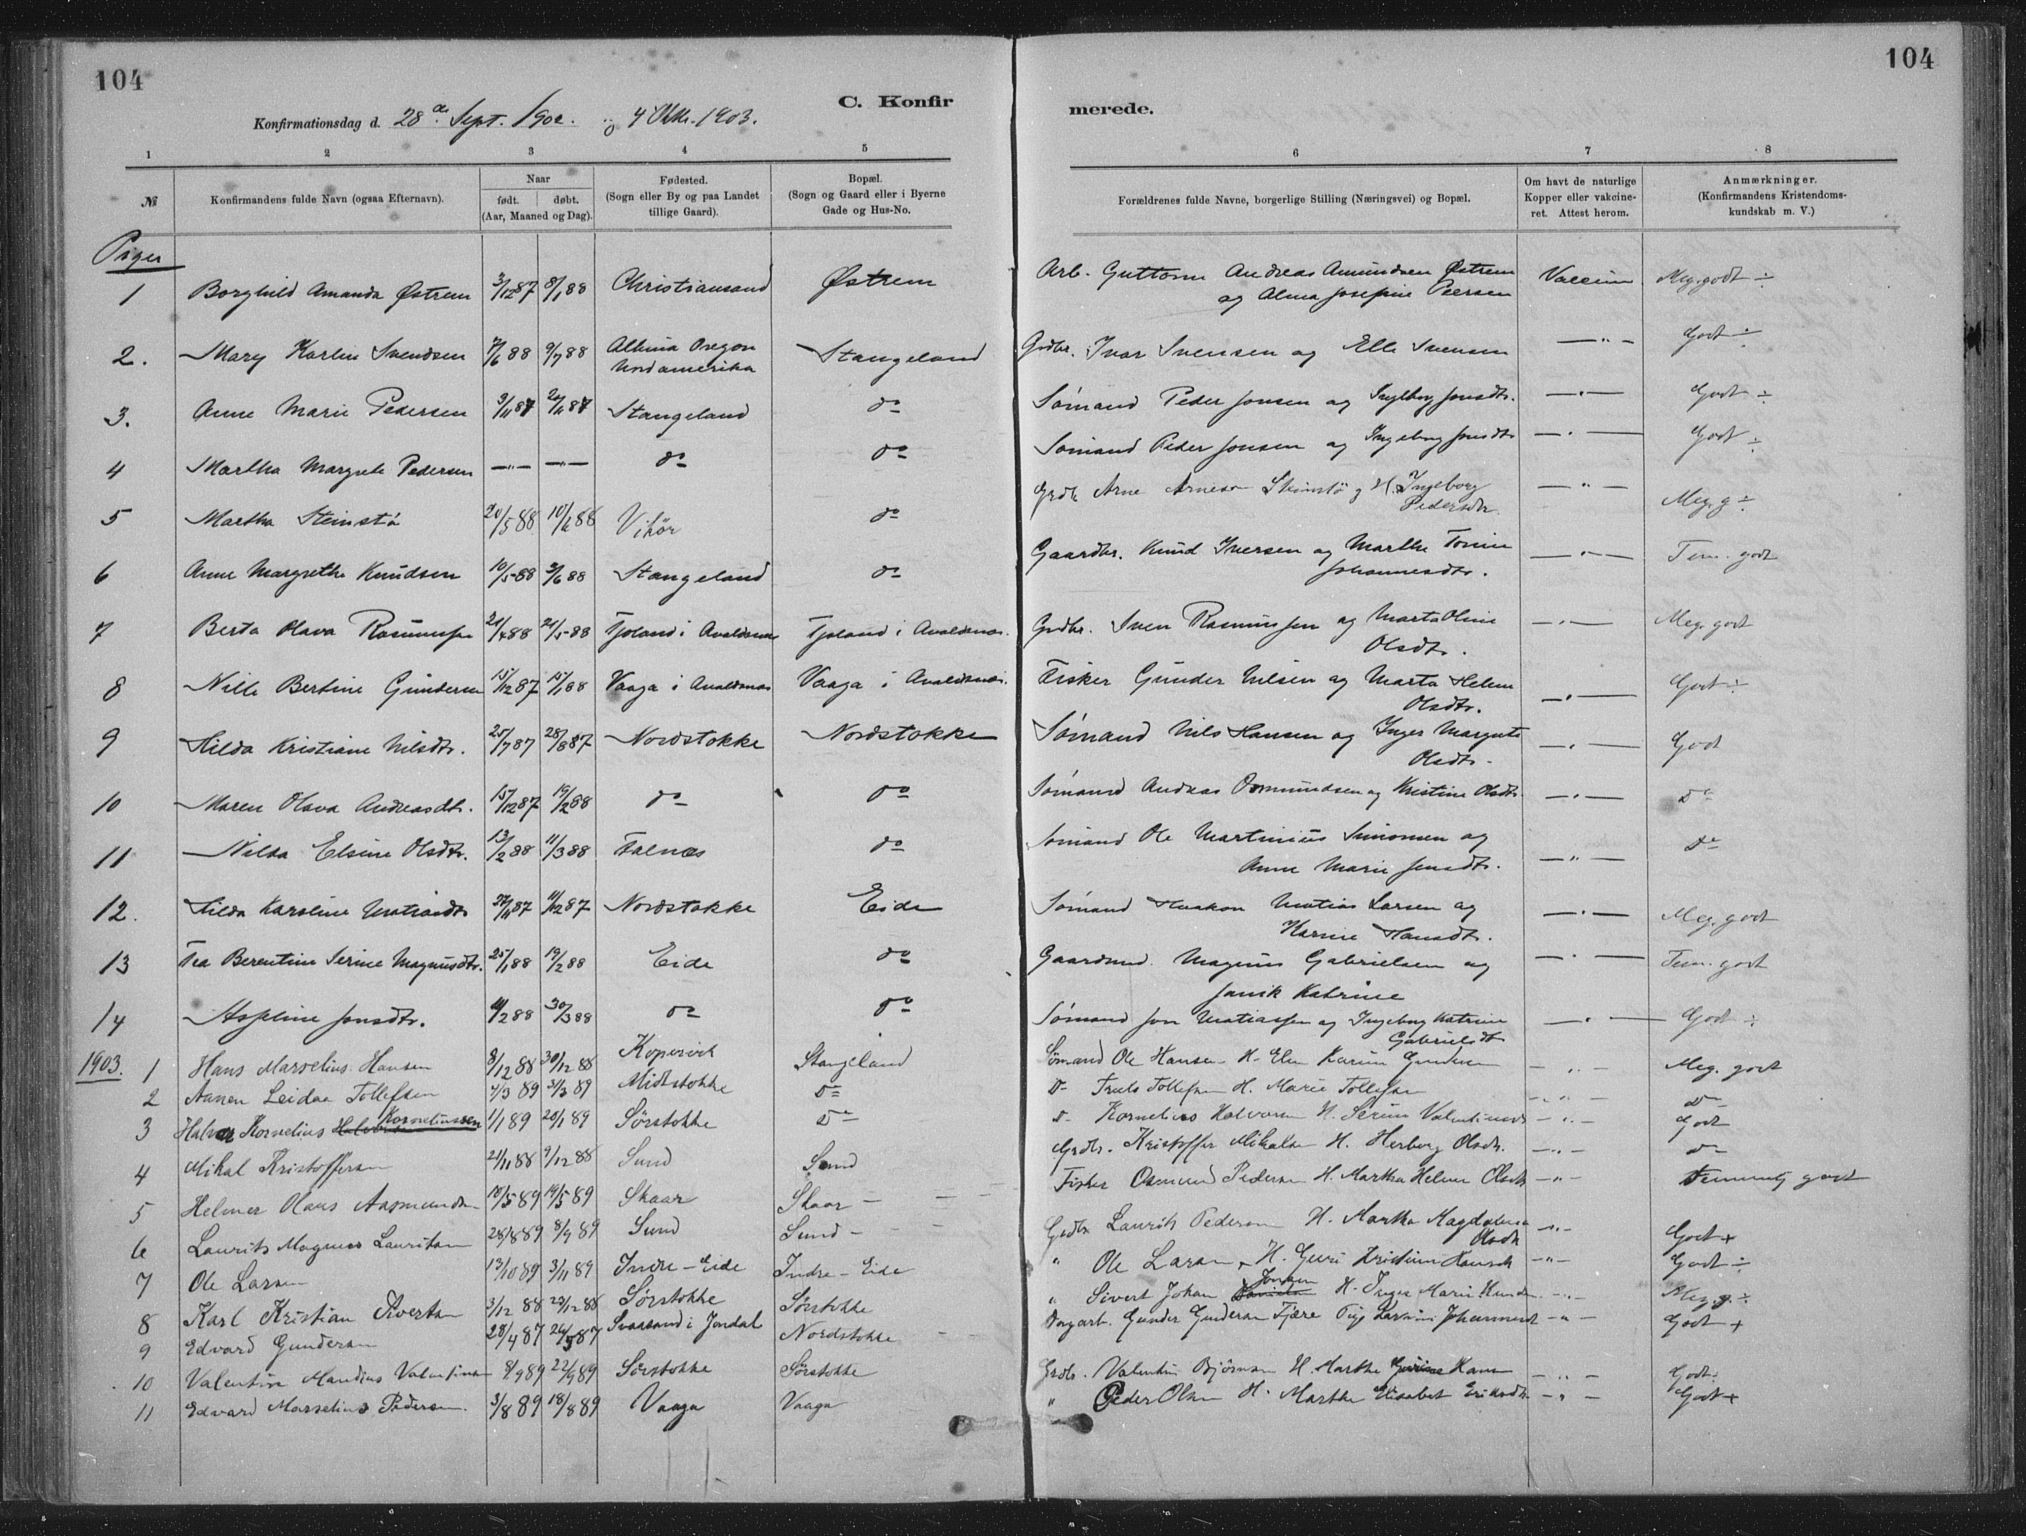 104
104
C. Konfir merede.
Konfirmationsdag d. 28de Sept. 1902. og 4 Oktbr. 1903.
1 2 3 4 5 6 7 8
№ Konfirmandens fulde Navn (ogsaa Efternavn). Naar født. døbt. (Aar, Maaned og Dag). Fødested. (Sogn eller By og paa Landet tillige Gaard). Bopæl. (Sogn og Gaard eller i Byerne Gade og Hus-No. Forældrenes fulde Navne, borgerlige Stilling (Næringsvei) og Bopæl. Om havt de naturlige Kopper eller vakcineret. Attest herom. Anmærkninger. (Konfirmandens Kristendomskundskab m. V.)
Piger
1 Borghild Amanda Østrem 3/12 87 8/1 88 Christianssand Østrem Arb. Guttorm Andreas Amundsen Østrem og Alma Josefine Peersen Vaccin Meg. godt ÷
2. Mary Karline Svendsen 7/6 88 9/7 88 Albina Oregon Nordamerika Stangeland Grdbr. Ivar Svensen og Elle Svensen —"— Godt ÷
3. Anne Marie Pedersen 3/11 87 20/11 87 Stangeland do Sømand Peder Jonsen og Ingeborg Jonsdtr. —"— Godt ÷
4 Martha Margrete Pedersen —"— —"— do do Sømand Peder Jonsen og Ingeborg Jonsdtr —"— Godt ÷
5 Martha Steinstø 20/5 88 10/6 88 Vikør do Grdb Arne Arneson Steinstø og H. Ingeborg Pedersdtr. —"— Meg. g ÷
6 Anne Margrethe Knudsen 10/5 88 3/6 88 Stangeland do Gaardbr. Knud Iversen og Marthe Tonine Johannesdtr. —"— Tem. godt
7 Berta Olava Rasmussen 21/4 88 21/5 88 Tjoland i Avaldsnæs Tjoland i Avaldsnæs. Grdbr. Sven Rasmussen og Marta Oline Olsdtr. —"— Meg. godt
8 Nille Bertine Gundersen 15/12 87 15/1 88 Vaaga i Avaldsnæs Vaaga i Avaldsnæs. Fisker Gunder Nilsen og Marta Helene Olsdtr. —"— Godt ÷
9 Hilda Kristiane Nilsdtr. 25/7 87 28/8 87 Nordstokke Nordstokke Sømand Nils Hansen og Inger Margrete Olsdtr. —"— Godt
10 Maren Olava Andreasdtr. 15/12 87 19/2 88 do do Sømand Andreas Osmundsen og Kristine Olsdtr. —"— do
11 Nilda Elsine Olsdtr. 13/2 88 11/3 88 Falnæs do Sømand Ole Martinius Simonsen og Anne Marie Jonsdtr. —"— do
12. Hilda Karoline Matiasdtr 11/12 87 Nordstokke Eide Sømand Haakon Matias Larsen og Karine Hansdtr. —"— Meg. godt
13 Tea Berentine Serine Magnusdtr. 25/1 88 19/2 88 Eide do Gaardmd. Magnus Gabrielsen og Janik Katrine —"— Tem. godt
14 Aspeline Jonsdtr. 11/2 88 30/3 88 do do Sømand Jon Matiassen og Ingeborg Katrine Gabrielsdtr —"— Godt ÷
1903. 1 Hans Marselius Hansen 8/12 88 30/12 88 Kopervik Stangeland Sømand Ole Hansen H. Elen Karine —"— Meg. godt
2 Leidaa Tollefsen 4/3 89 31/3 89 Midtstokke do do Truls Tollefsen H. Marie Tollefsen —"— do
3 Halvor Kornelius Korneliussen 1/1 89 20/1 89 Sørstokke do do Kornelius Halvorsen H. Serine Valentinsdt —"— Godt
4 Mikal Kristoffersen 21/11 88 9/12 88 Sund Sund Grdbr. Kristoffer Mikalsen H. Herborg Olsdtr. —"— do
5 Helmer Olaus Aasmundsen 10/5 89 19/5 89 Skaar Skaar — Fisker Osmund Pedersen H. Martha Helene Olsdtr —"— Temmelig godt
6 Laurits Magnus Lauritsen 28/8 89 8/9 89 Sund Sund — Grdbr Laurits Pedersen H. Martha Magdalena Olsdtr —"— Godt +
7 Ole Larsen 13/10 89 3/11 89 Indre-Eide Indre-Eide " Ole Larsen H. Guri Kristine Hansdt —"— Godt ÷
8 Karl Kristian Sivertsen 3/12 88 29/12 88 Sørstokke Sørstokke " Sivert Johan Jonsen H. Inger Marie —"— Meg. g. ÷
9 Edvard Gundersen 28/4 87 26/5 87 Svaasand i Jondal Nordstokke Dagarb. Gunder Gundersen Fjære Pige Johannesdt —"— Godt +
10 Valentin Mandius Valentinsen 8/9 89 22/9 89 Sørstokke Sørstokke Grdbr. Valentin Bjørnsen H. Marthe —"— Godt
11 Edvard Marselius Pedersen. 3/8 89 18/8 89 Vaaga Vaaga " Peder Olsen H. Marthe Elisabet Eriksdtr —"— Godt +